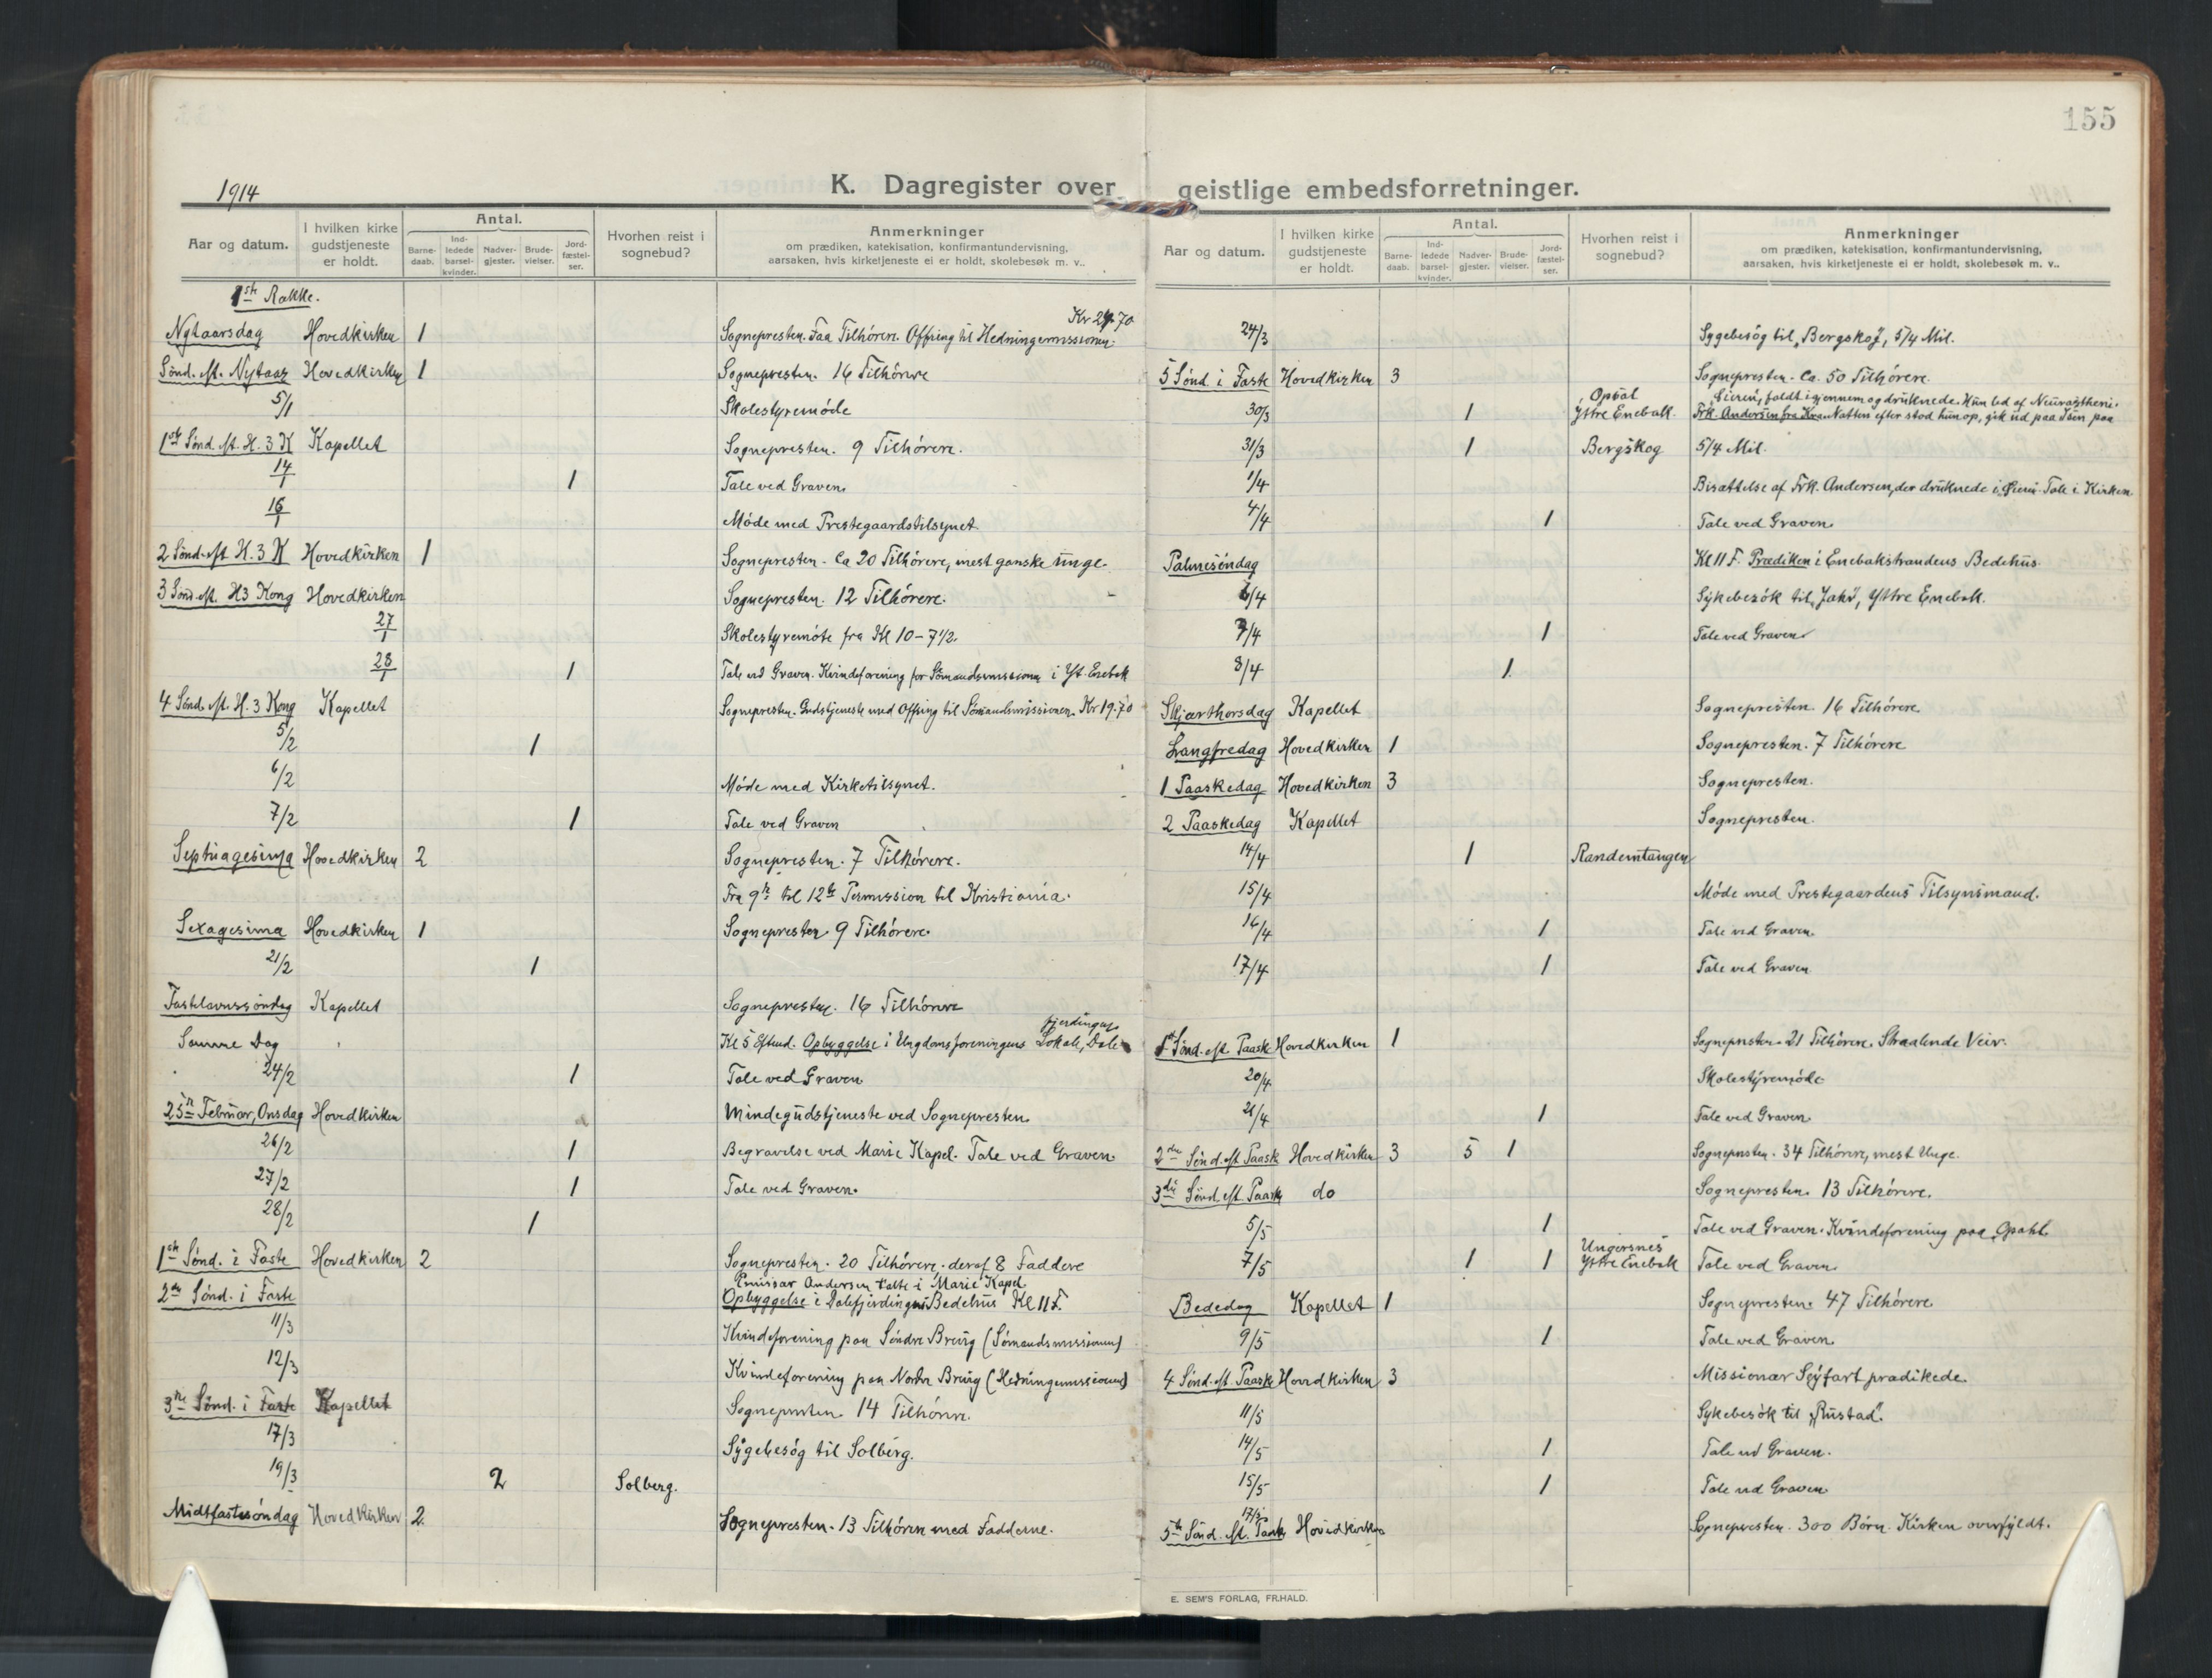 155
1914
K. Dagregister over geistlige embedsforretninger.
Aar og datum. I hvilken kirke gudstjeneste er holdt. Antal. Barnedaab. Indledede barselkvinder. Nadvergjester. Brudevielser. Jordfæstelser. Hvorhen reist i sognebud? Anmerkninger om prædiken, katekisation, konfirmantundervisning, aarsaken, hvis kirketjeneste ei er holdt, skolebesøk m. v..
1ste Række.
Nytaarsdag Hovedkirken 1 Sognepresten. Faa Tilhörere. Offring til Hedningemissionen. Kr 24.70
Sönd. eft. Nytaar Hovedkirken 1 Sognepresten. 16 Tilhörere
5/1 Skolestyremöde
1ste Sönd. eft. H. 3 K Kapellet Sognepresten. 9 Tilhörere.
14/1 1 Tale ved Graven.
16/1 Möde med Prestegaardstilsynet.
2 Sönd. eft H. 3 K Hovedkirken 1 Sognepresten. Ca 20 Tilhörere, mest ganske unge.
3 Sönd. eft. H3 Kong Hovedkirken Sognepresten. 12 Tilhörere.
27/1 Skolestyremöte fra Kl 10 - 7 1/2.
28/1 1 Tale ved Graven. Kvindeforening for Sömandsmissionen i Yt. Enebak
4 Sönd. eft. H. 3 Kong Kapellet Sognepresten. Gudstjeneste med Offring til Sömandsmissionen. Kr 19.70
5/2 1
6/2 Möde med Kirketilsynet.
7/2 1 Tale ved Graven
Septuagesima Hovedkirken 2 Sognepresten. 7 Tilhörere.
Fra 9de til 12te Permission til Kristiania.
Sexagesima Hovedkirken 1 Sognepresten 9 Tilhörere.
21/2 1
Fastelavnssöndag Kapellet Sognepresten. 16 Tilhörere
Samme Dag Kl 5 Efterd. Opbyggelse i Ungdomsforeningens Lokale, Dalefjerdingen
24/2 1 Tale ved Graven
25de Februar, Onsdag Hovedkirken Mindegudstjeneste ved Sognepresten.
26/2 1 Begravelse ved Marie Kapel. Tale ved Graven
27/2 1 Tale ved Graven.
28/2 1
1ste Sönd. i Faste Hovedkirken 2 Sognepresten. 20 Tilhörere. deraf 8 Faddere
Emissær Andersen talte i Marie Kapel
2den Sönd. i Faste Opbyggelse i Dalefjerdingens Bedehus Kl 11 F.
11/3 Kvindeforening paa Söndre Breivig (Sömandsmissionen)
12/3 Kvindeforening paa Nordre Breivig (Hedningemissionen)
3die Sönd. i Faste Kapellet Sognepresten 14 Tilhörere.
17/3 Sygebesög til Solberg.
19/3 2 Solberg.
Midtfastesöndag Hovedkirken 2 Sognepresten. 13 Tilhörere med Fadderne.
Aar og datum. I hvilken kirke gudstjeneste er holdt. Antal. Barnedaab. Indledede barselkvinder. Nadvergjester. Brudevielser. Jordfæstelser. Hvorhen reist i sognebud? Anmerkninger om prædiken, katekisation, konfirmantundervisning, aarsaken, hvis kirketjeneste ei er holdt, skolebesøk m. v..
24/3 Sygebesög til „Bergskog", 5/4 Mil.
5 Sönd i Faste Hovedkirken 3 Sognepresten. Ca. 50 Tilhörere.
30/3 1 Opsal Ystre Enebak. Frk. Andersen fra Kra. Natten efter stod hun op, gik ud paa Isen paa Öieren, faldt igjennem og druknede. Hun led af Neurastheni.
31/3 1 Bergskog 5/4 Mil.
1/4 Bisættelse af Frk. Andersen, der druknede i Öieren. Tale i Kirken
4/4 1 Tale ved Graven.
Palmesöndag Kl 11 F. Prædiken i Enebakstrandens Bedehus.
6/4 Sykebesök til, Ystre Enebak.
7/4 1 Tale ved Graven
8/4 1
Skjærthorsdag Kapellet Sognepresten. 16 Tilhörere
Langfredag Hovedkirken 1 Sognepresten. 7 Tilhörere
1 Paaskedag Hovedkirken 3 Sognepresten.
2 Paaskedag Kapellet Sognepresten.
14/4 1 Randemtangen
15/4 Möde med Prestegaardens Tilsynsmænd.
16/4 1 Tale ved Graven.
17/4 1 Tale ved Graven
1ste Sönd. eft Paaske Hovedkirken 1 Sognepresten. 21 Tilhörere. Straalende Veir.
20/4 Skolestyremöde
21/4 1 Tale ved Graven
2den Sönd. eft Paaske Hovedkirken 3 5 1 Sognepresten. 34 Tilhörere, mest Unge.
3die Sönd. eft Paaske do Sognepresten. 13 Tilhörere.
5/5 1 Tale ved Graven. Kvindeforening paa Opahl
7/5 1 1 Ungersnes Ystre Enebak Tale ved Graven.
Bededag Kapellet 1 Sognepresten. 47 Tilhörere.
9/5 1 Tale ved Graven.
4 Sönd. eft. Paaske Hovedkirken 3 Missionær Seyfart prædikede.
11/5 Sykebesök til „Rustad".
14/5 1 Tale ved Graven.
15/5 1 Tale ved Graven.
17/5
5te Sönd. eft. Paaske Hovedkirken Sognepresten. 300 Börn. Kirken overfyldt.
E. SEM'S FORLAG, FR.HALD.